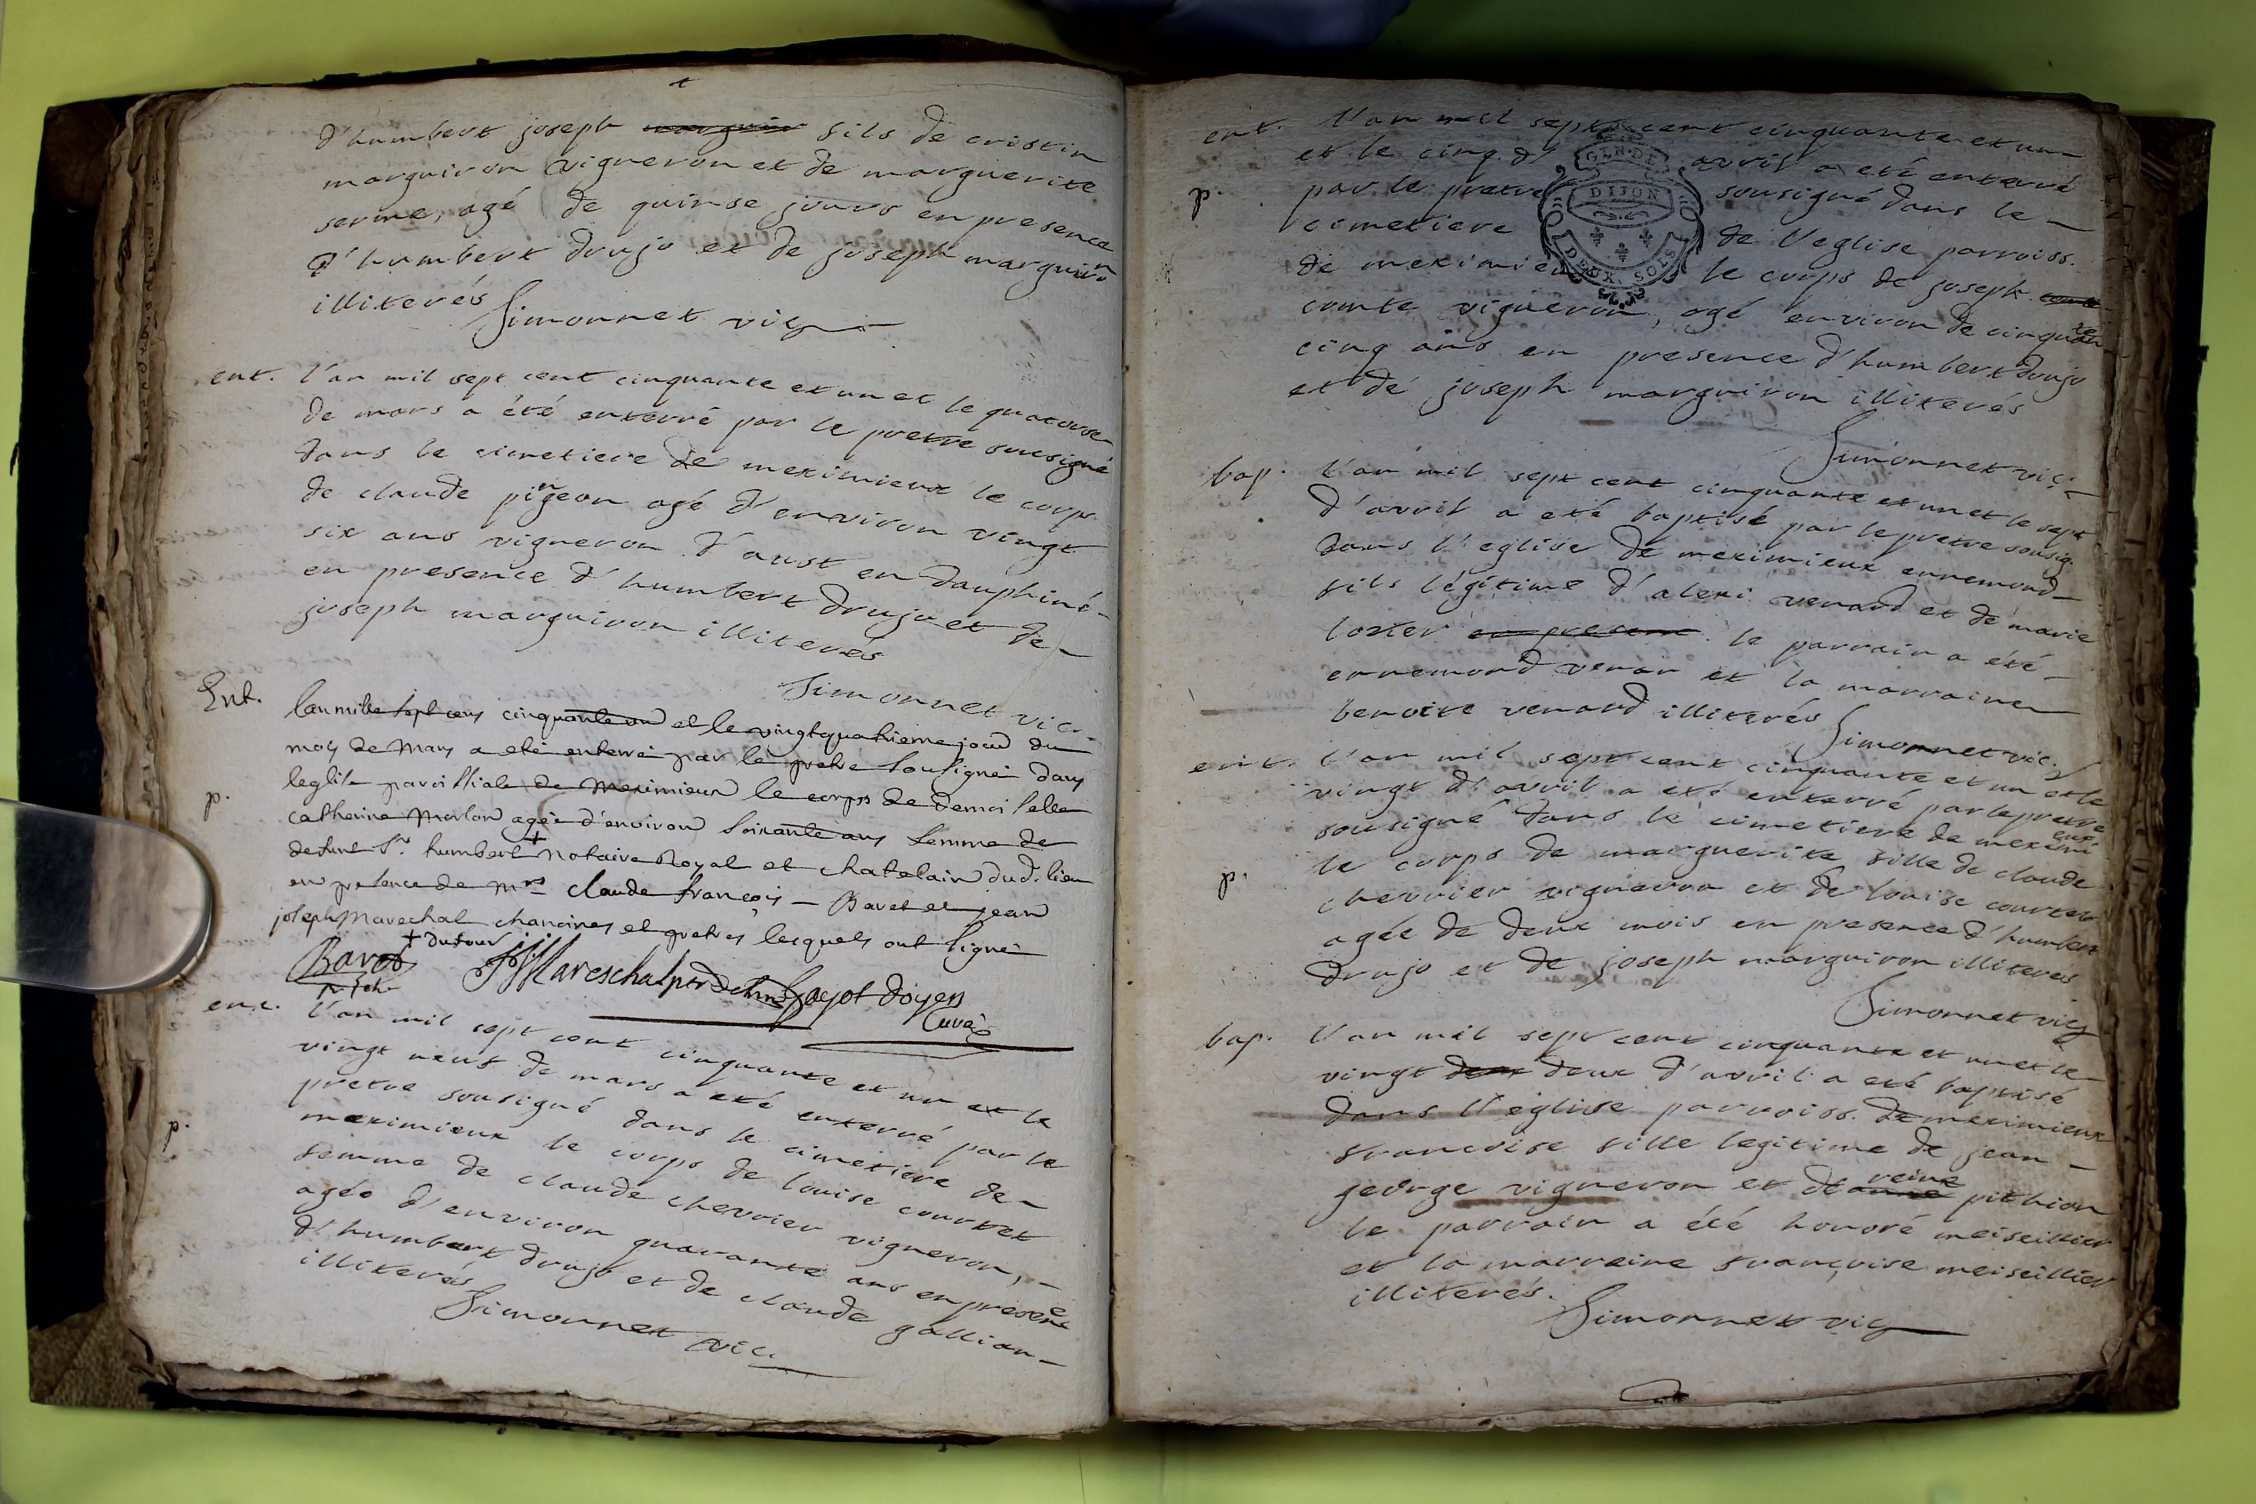 d'humbert joseph marguiron fils de cristin
marguiron vigneron et de marguerite
serme, agé de quinse jours en presence
d'humbert drujo et de joseph marguiron
illiterés
Simonnet vic
ent. l'an mil sept cent cinquante et un et le quatorse
de mars a été enterré par le pretre sousigné
dans le cimetiere de meximieux le corps
de claude pingeon agé d'environ vingt
six ans vigneron d'aust en dauphiné
en presence d'humbert drujo et de
joseph marguiron illiterés
Simonnet vic.
Ent. lan mille sept cens cinquante un et le vingtquatrieme jour du
mois de Mars a eté enterré par le pretre sousigné dans
leglise paroissiale de Meximieux le corps de demoiselle
p.
catherine Morlon agée d'environ soixante ans femme de
defunt Sr. humbert + Notaire Royal et chatelain dud. lieu
en presence de Mrs claude françois Bavet et jean
joseph Marechal chanoines et pretres lesquels ont signé
+ dufour
Bavet
JJ Mareschal ptr Goyot doyen
Curé
ent. l'an mil sept cent cinquante et un et le
vingt neuf de mars a eté enterré par le
pretre sousigné dans le cimetiere de
p.
meximieux le corps de louise courtet
femme de claude chevrier vigneron,
agée d'environ quarante ans en presence
d'humbert drujo et de claude gallian
illiterés
Simonnet vic.
ent. l'an mil sept cent cinquante et un
et le cinq d'avril a eté enterré
GEN. DE
DIJON
DEUX SOLS
p.
par le pretre sousigné dans le
cimetiere de l'eglise parroiss.
de meximieux le corps de joseph comte
comte vigneron, agé environ de cinquante
cinq ans en presence d'humbert drujo
et de joseph marguiron illiterés
Simonnet vic.
bap. l'an mil sept cent cinquante et un et le sept
d'avril a eté baptisé par le pretre sousig.
dans l'eglise de meximieux ennemond
fils légitime d'alexi venard et de marie
loxter en presence le parrain a été
ennemond venar et la marraine
benoite venard illiterés
Simonnet vic.
ent. l'an mil sept cent cinquante et un et le
vingt d'avril a eté enterré par le pretre
sousigné dans le cimetiere de meximieux
p.
le corps de marguerite fille de claude
chevrier vigneron et de louise courtet
agée de deux mois en presence d'humbert
drujo et de joseph marguiron illiteres
Simonnet vic
bap. l'an mil sept cent cinquante et un et le
vingt deux deux d'avril a eté baptisé
dans l'église parroiss. de meximieux
francoise fille legitime de jean
george vigneron et de anne reine pithion
le parrain a été honoré meiseillier
et la marraine françoise meiseillier
illiterés.
Simonnet vic